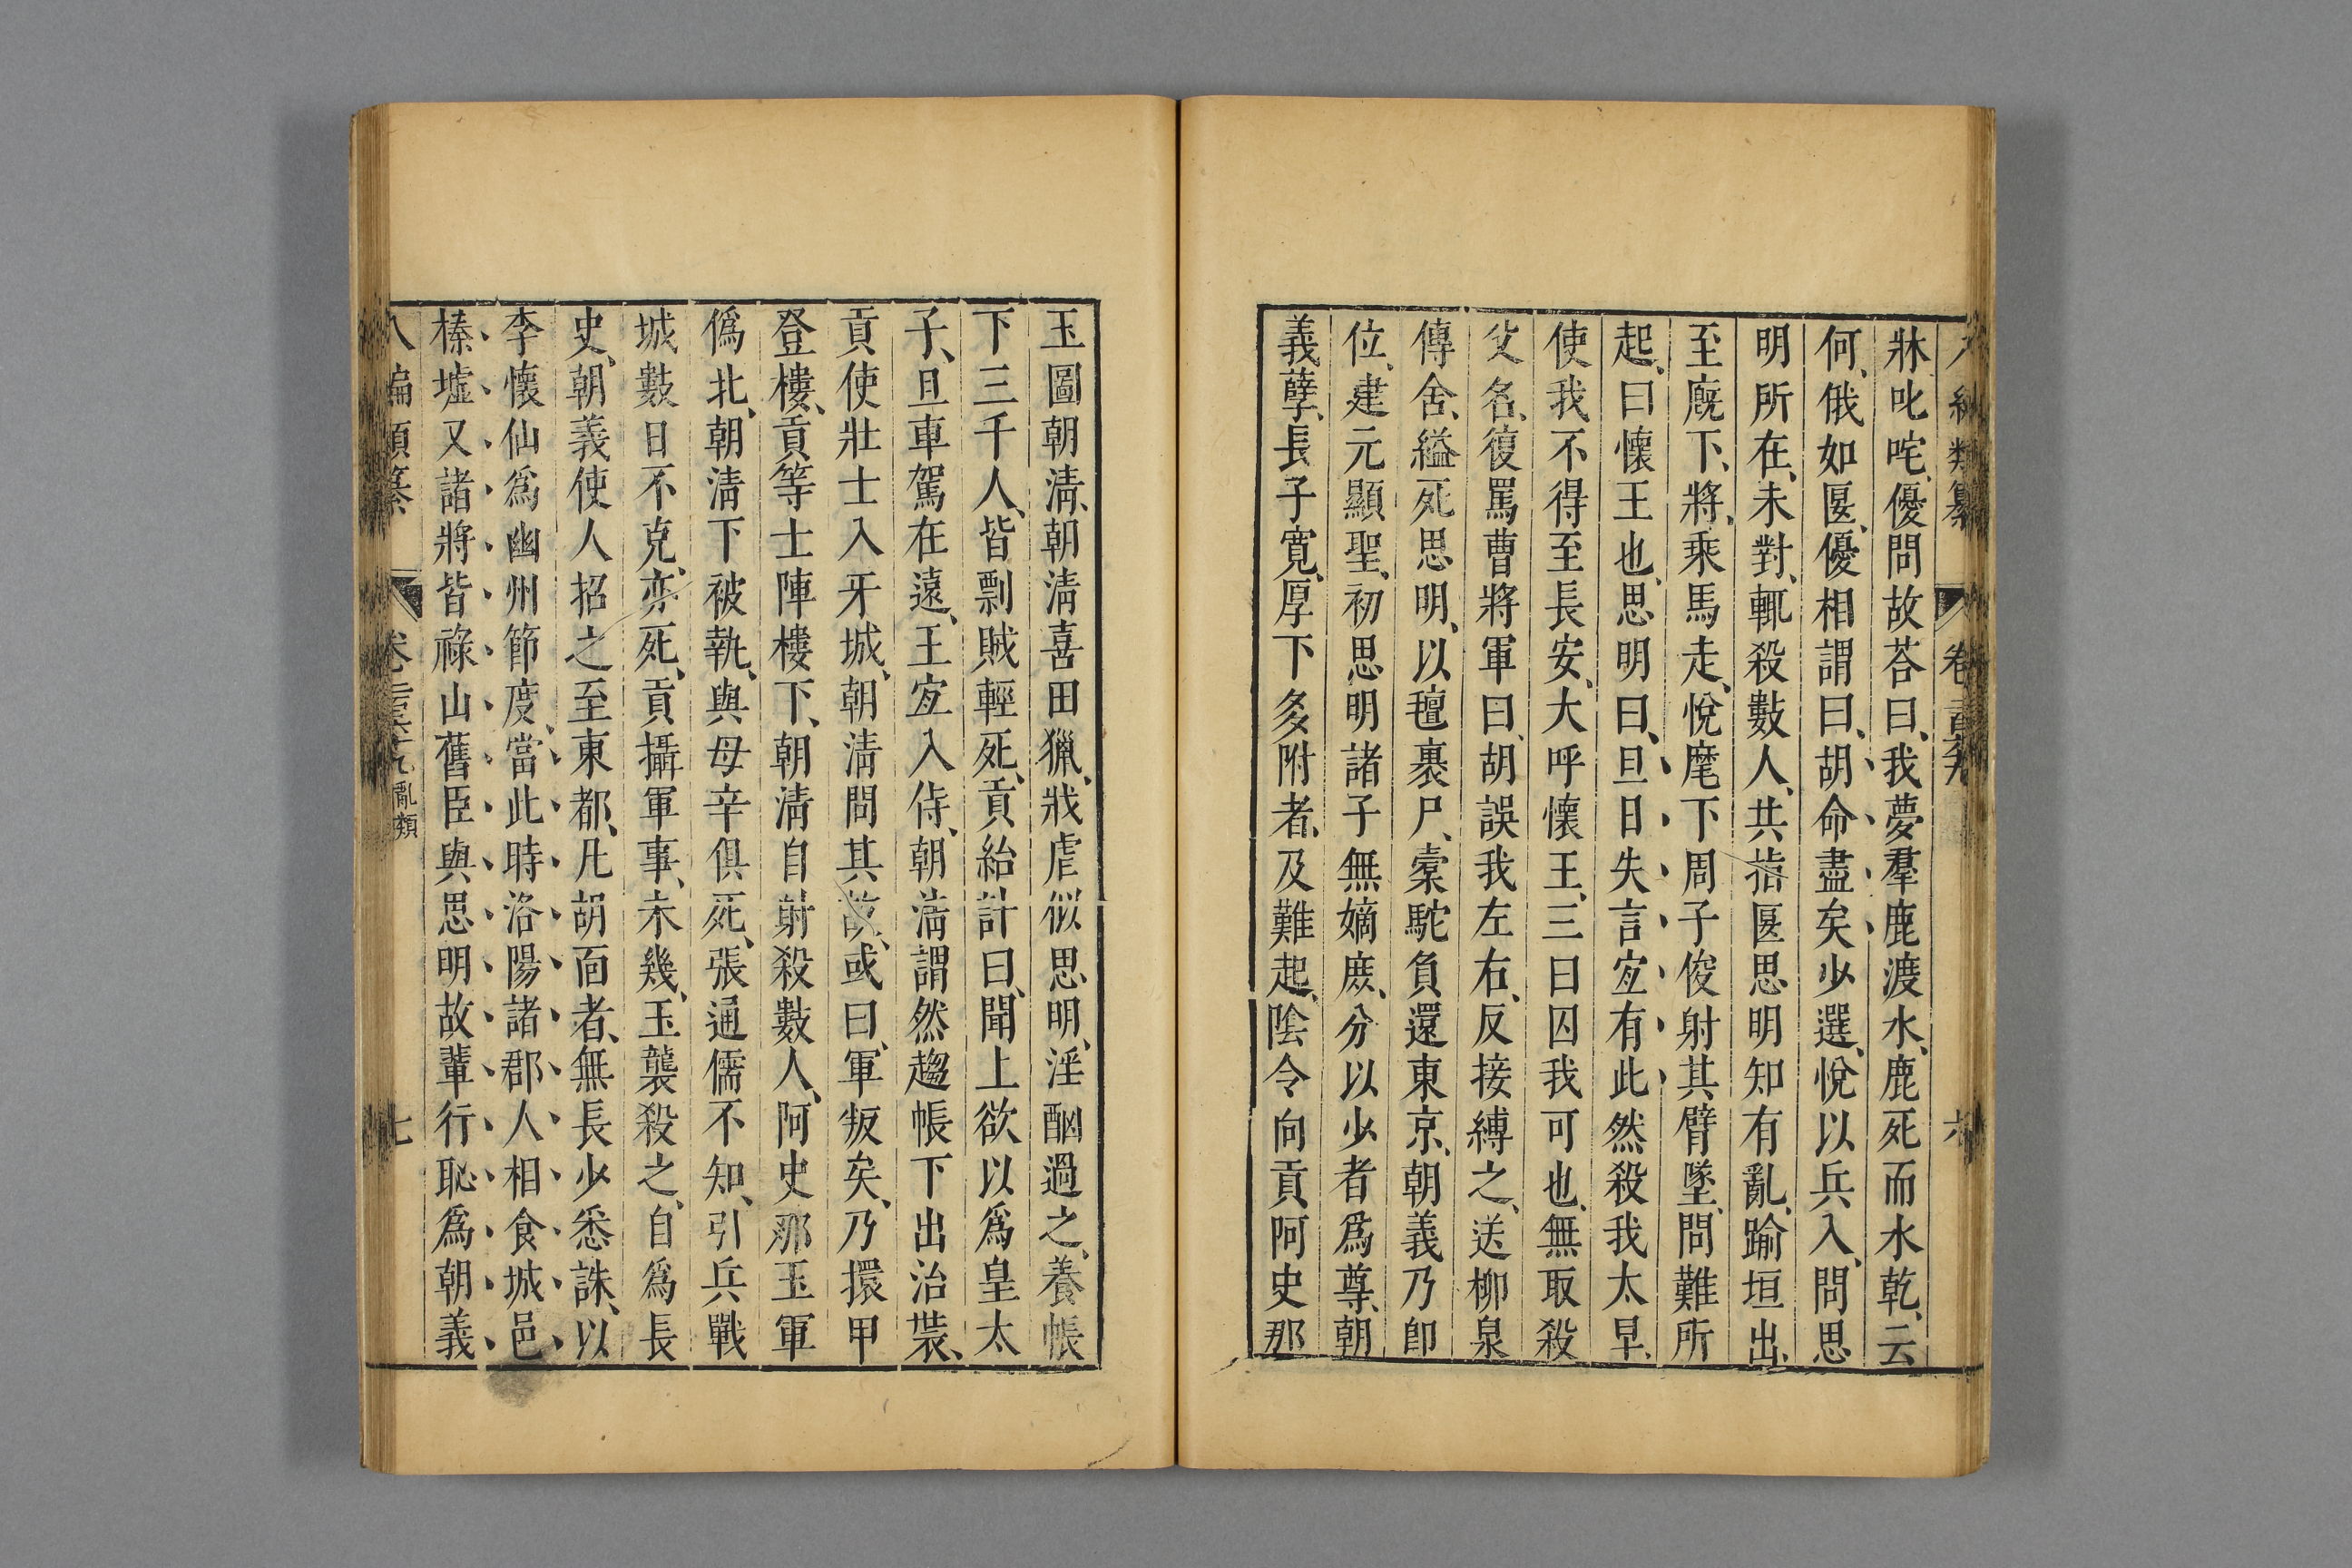 編類纂 卷 六
牀叱咤優問故荅曰我夢羣鹿渡水鹿死而水乾云
何俄如匽優相謂曰胡命盡矣少選悅以兵入問思
明所在未對輒殺數人共指匽思明知有亂踰垣出
至廐下將乘馬走悅麾下周子俊射其臂墜問難所
起曰懷王也思明曰旦日失言宐有此然殺我太早
使我不得至長安大呼懷王三曰囚我可也無取殺
父名復罵曹將軍曰胡誤我左右反接縛之送柳泉
傳舍縊死思明以氊裹尸橐駝負還東京朝義乃卽
位建元顯聖初思明諸子無嫡庶分以少者爲尊朝
義孽長子寬厚下多附者及難起陰令向貢阿史那
玉圖朝淸朝淸喜田獵戕虐似思明淫酗過之養帳
下三千人皆剽賊輕死貢紿計曰聞上欲以爲皇太
子且車駕在遠王宐入侍朝淸謂然趨帳下出治裝
貢使壯士入牙城朝淸問其故或曰軍叛矣乃擐甲
登樓貢等士陣樓下朝淸自射殺數人阿史那玉軍
僞北朝淸下被執與母辛俱死張通儒不知引兵戰
城數日不克亦死貢攝軍事未幾玉襲殺之自爲長
史朝義使人招之至東都凡胡面者無長少悉誅以
李懷仙爲幽州節度當此時洛陽諸郡人相食城邑
榛墟又諸將皆祿山舊臣與思明故輩行恥爲朝義
八編類纂 卷 亂類 七